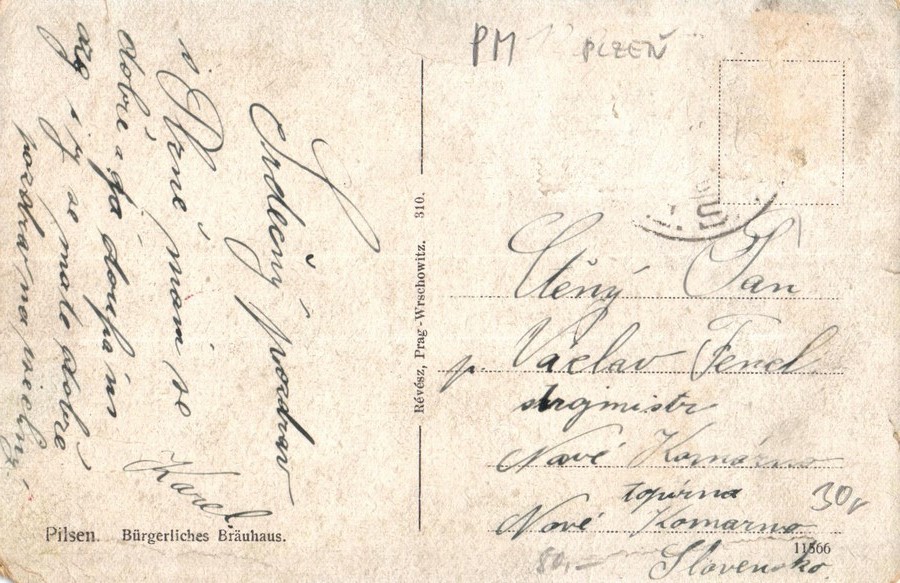 PM PLZEŇ
Srdečný pozdrav
s Plzně mám se
dobře a já doufám
že i vy se máte dobře
pozdrav na všechny
Karel
Pilsen. Bürgerliches Bräuhaus.
Révész, Prag-Wrschowitz. 310.
Ctěný Pan
p. Václav Fencl
strojmistr
Nové Komárno
topírna
Nové Komarno
Slovensko
30,-
80,-
11566